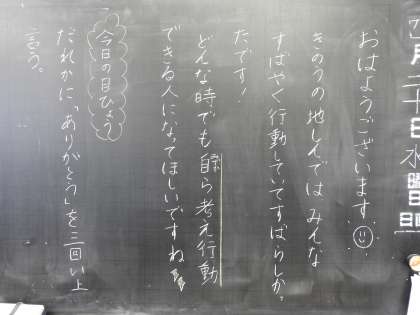 月二十日水曜日
おはようございます。
きのうの地しんではみんな
すばやく行動していてすばらしかっ
たです!
どんな時でも自ら考え行動
できる人になってほしいですね
今日の目ひょう
だれかに「ありがとう」を三回い上
言う。